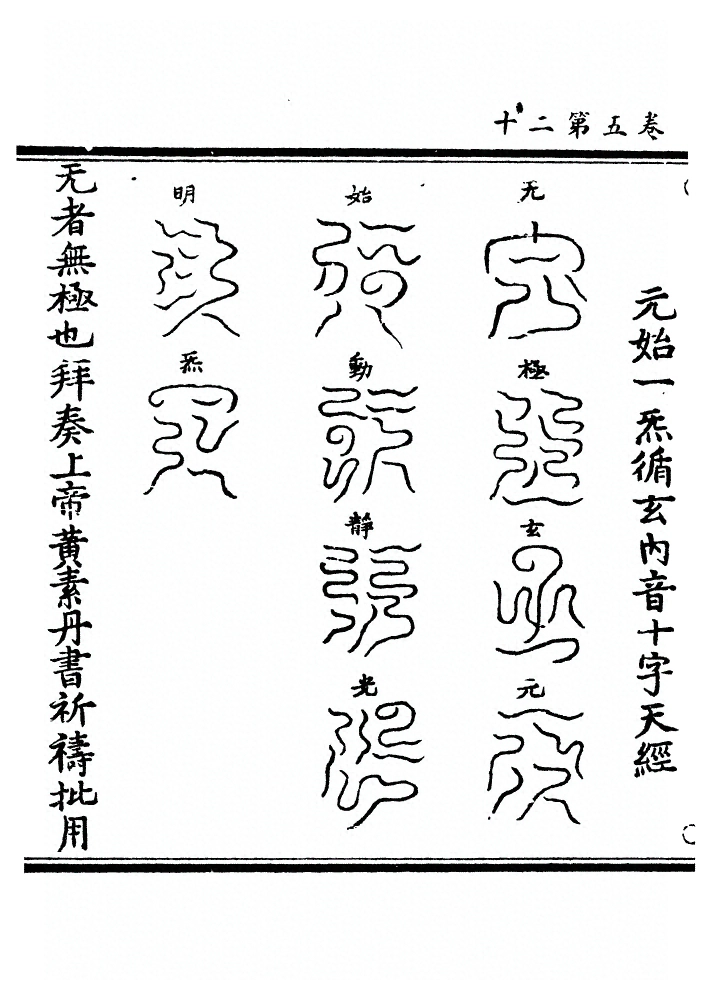 卷五第二十
元始一炁循玄內音十字天經
无
極
玄
元
始
動
靜
光
明
炁
无者無極也拜奏上帝黃素丹書祈禱批用